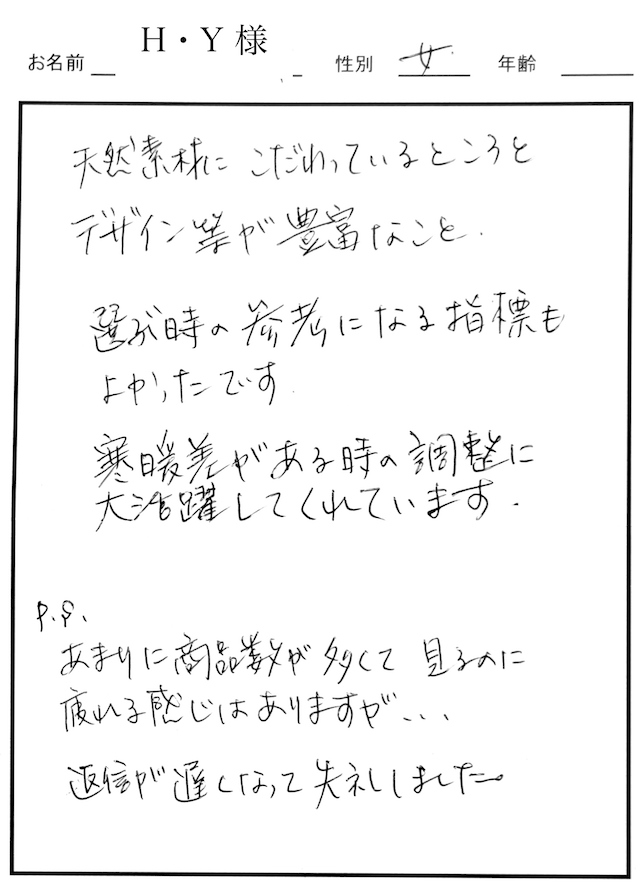 お名前 H・Y 様 性別 女 年齢
天然素材に こだわっているところと
デザイン等が豊富なこと.
選ぶ時の参考になる指標も
よかったです.
寒暖差がある時の調整に
大活躍してくれています.
P.S.
あまりに商品数が多くて 見るのに
疲れる感じはありますが...
返信が遅くなって失礼しました。